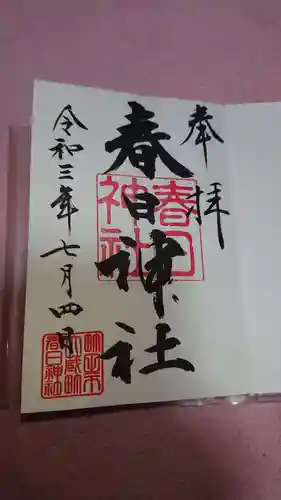 奉拝
春日神社
春日神社
令和三年七月四日
春日神社